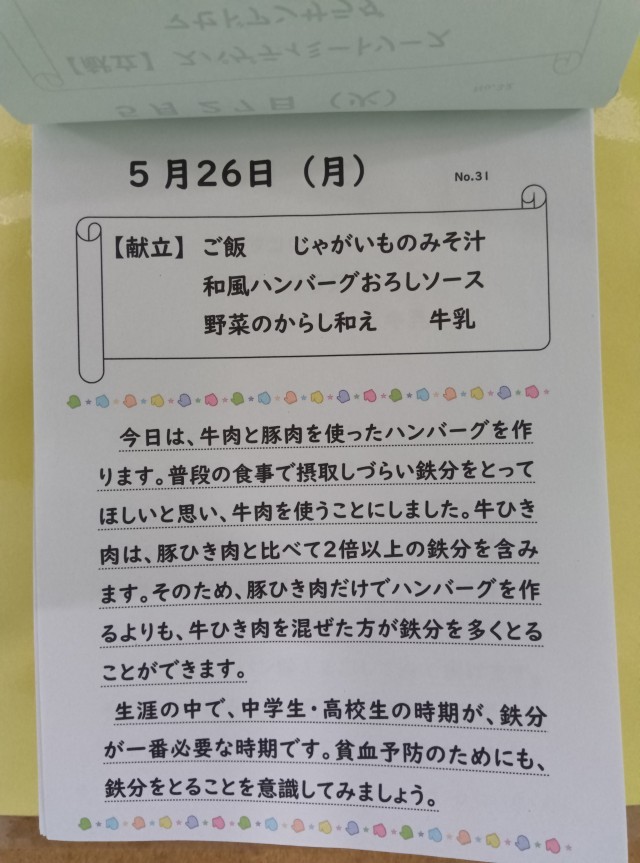 マセドアンサラダ
【献立】 スパゲティミートソース
5月27日（火）
5月26日（月）
No.31
【献立】 ご飯 じゃがいものみそ汁
和風ハンバーグおろしソース
野菜のからし和え 牛乳
今日は、牛肉と豚肉を使ったハンバーグを作
ります。普段の食事で摂取しづらい鉄分をとって
ほしいと思い、牛肉を使うことにしました。牛ひき
肉は、豚ひき肉と比べて2倍以上の鉄分を含み
ます。そのため、豚ひき肉だけでハンバーグを作
るよりも、牛ひき肉を混ぜた方が鉄分を多くとる
ことができます。
生涯の中で、中学生・高校生の時期が、鉄分
が一番必要な時期です。貧血予防のためにも、
鉄分をとることを意識してみましょう。